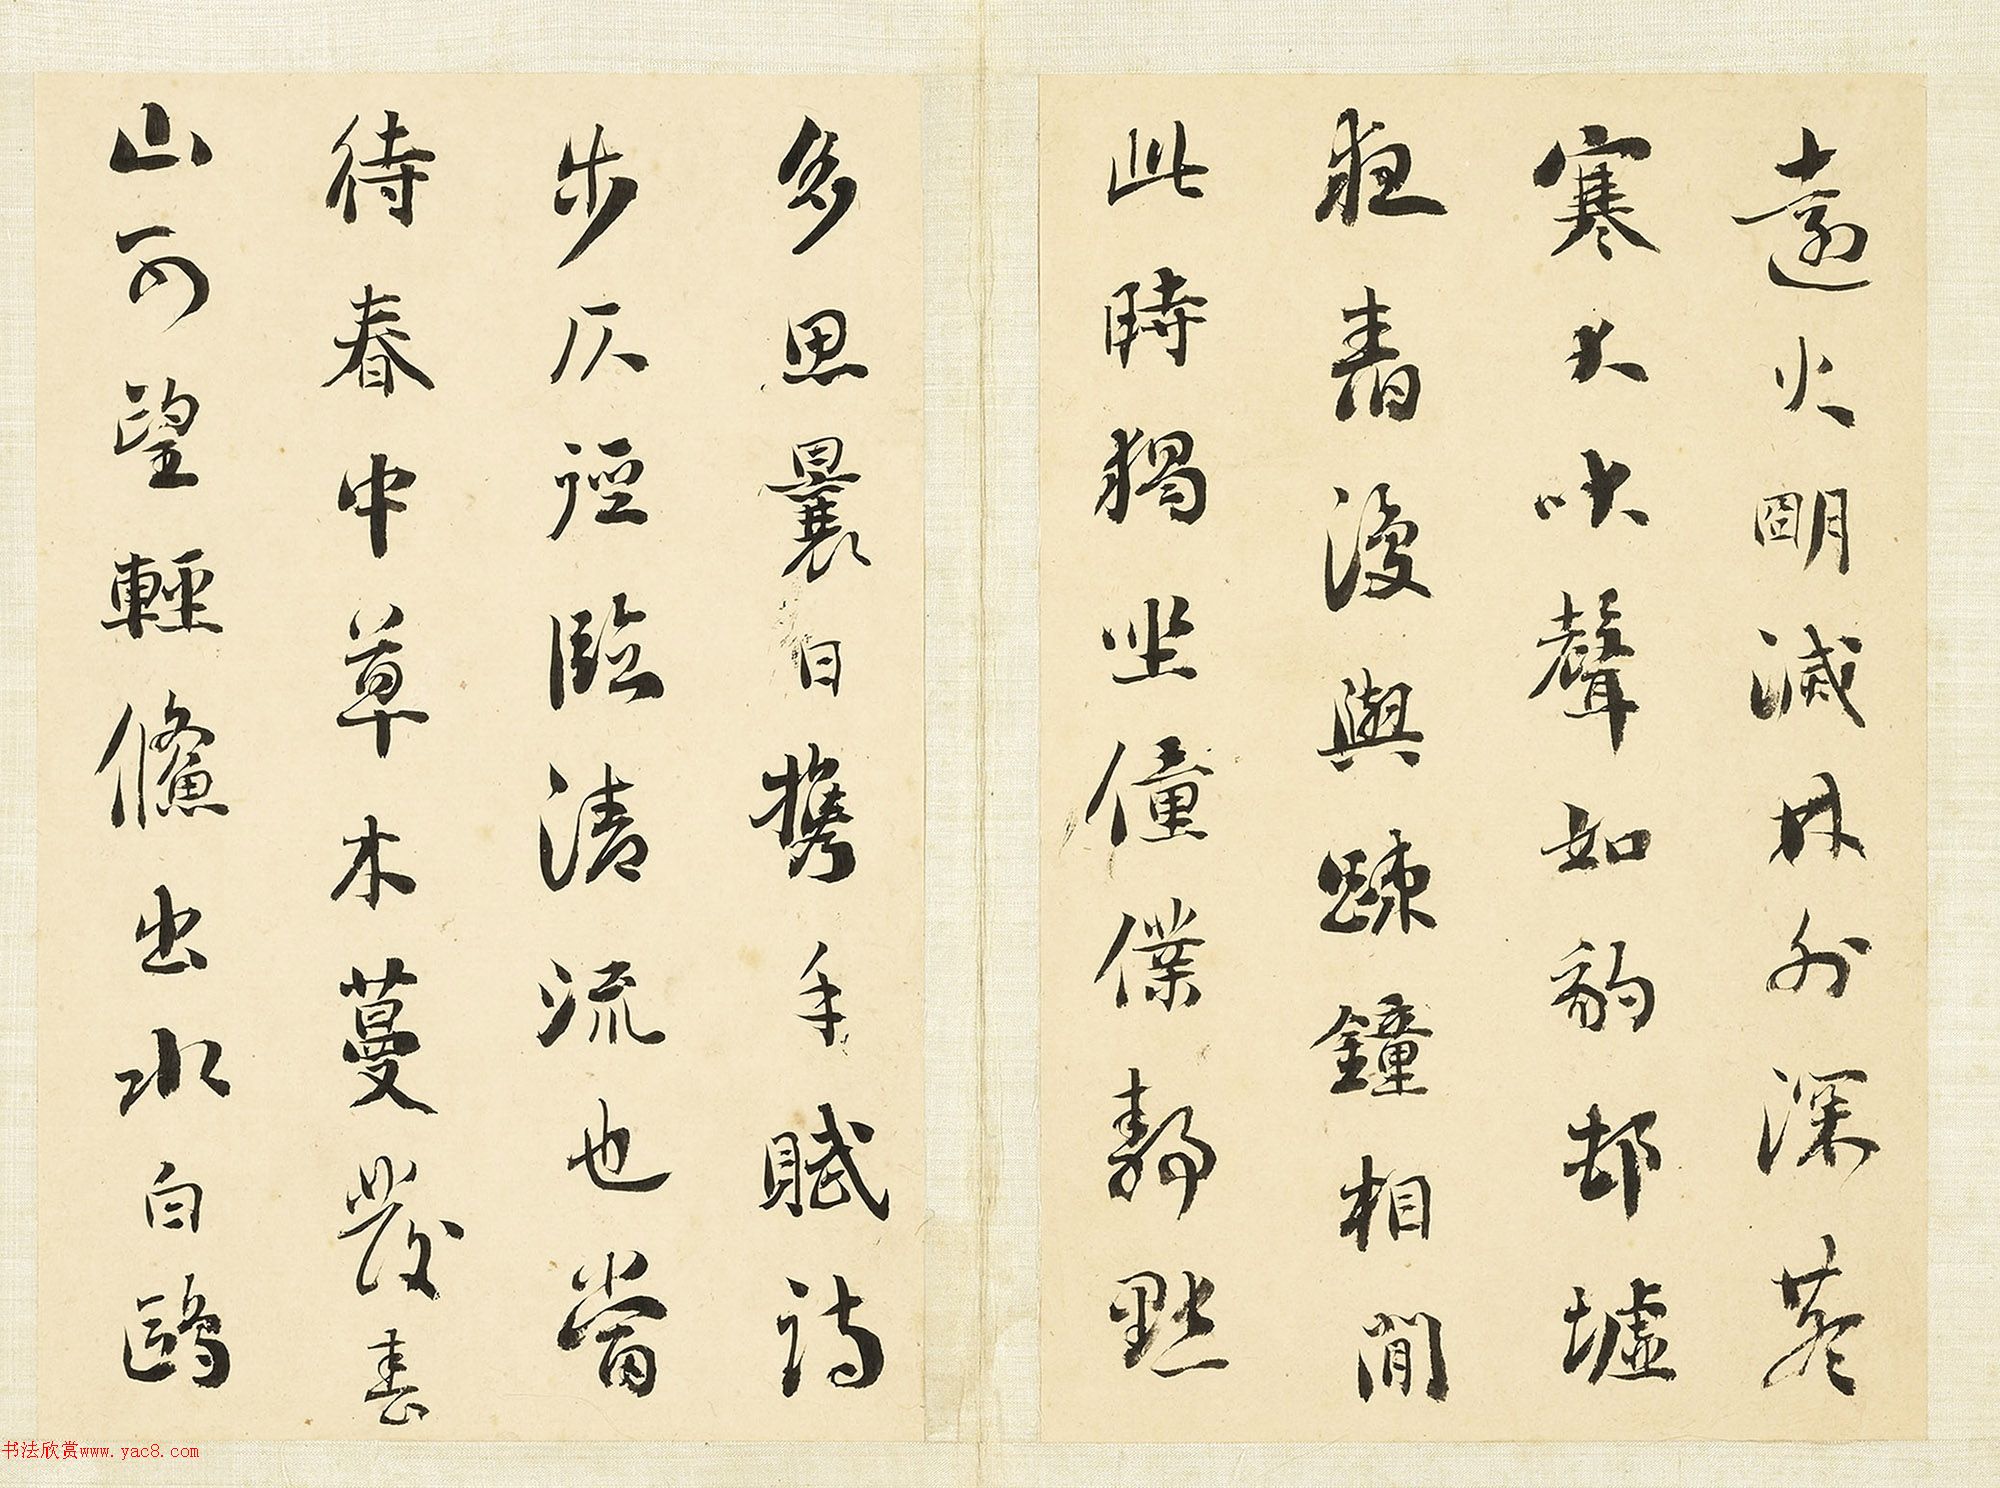 遠火明滅林外深巷
寒犬吠聲如豹邨墟
夜舂復與踈鐘相間
此時獨坐僮僕靜默
多思曩日攜手賦詩
步仄逕臨清流也當
待春中草木蔓發春
山可望輕鯈出水白鷗
书法欣赏www.yac8.com